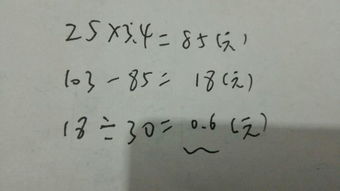 25×3.4=85(元)
103-85=18(元)
18÷30=0.6(元)